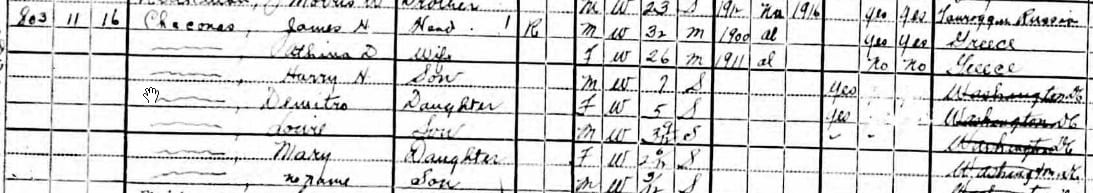 Morris W Brother M W 23 S 1912 na 1916 yes yes Russia
803 11 16 Chaconas, James H Head 1 R M W 32 m 1900 al yes yes Greece
, Athina D Wife F W 26 m 1911 al no no Greece
, Harry H Son M W 7 S yes Washington DC
, Demitro Daughter F W 5 S yes Washington DC
, Louie Son M W S Washington DC
, Mary Daughter F W S Washington DC
, no name Son M W S